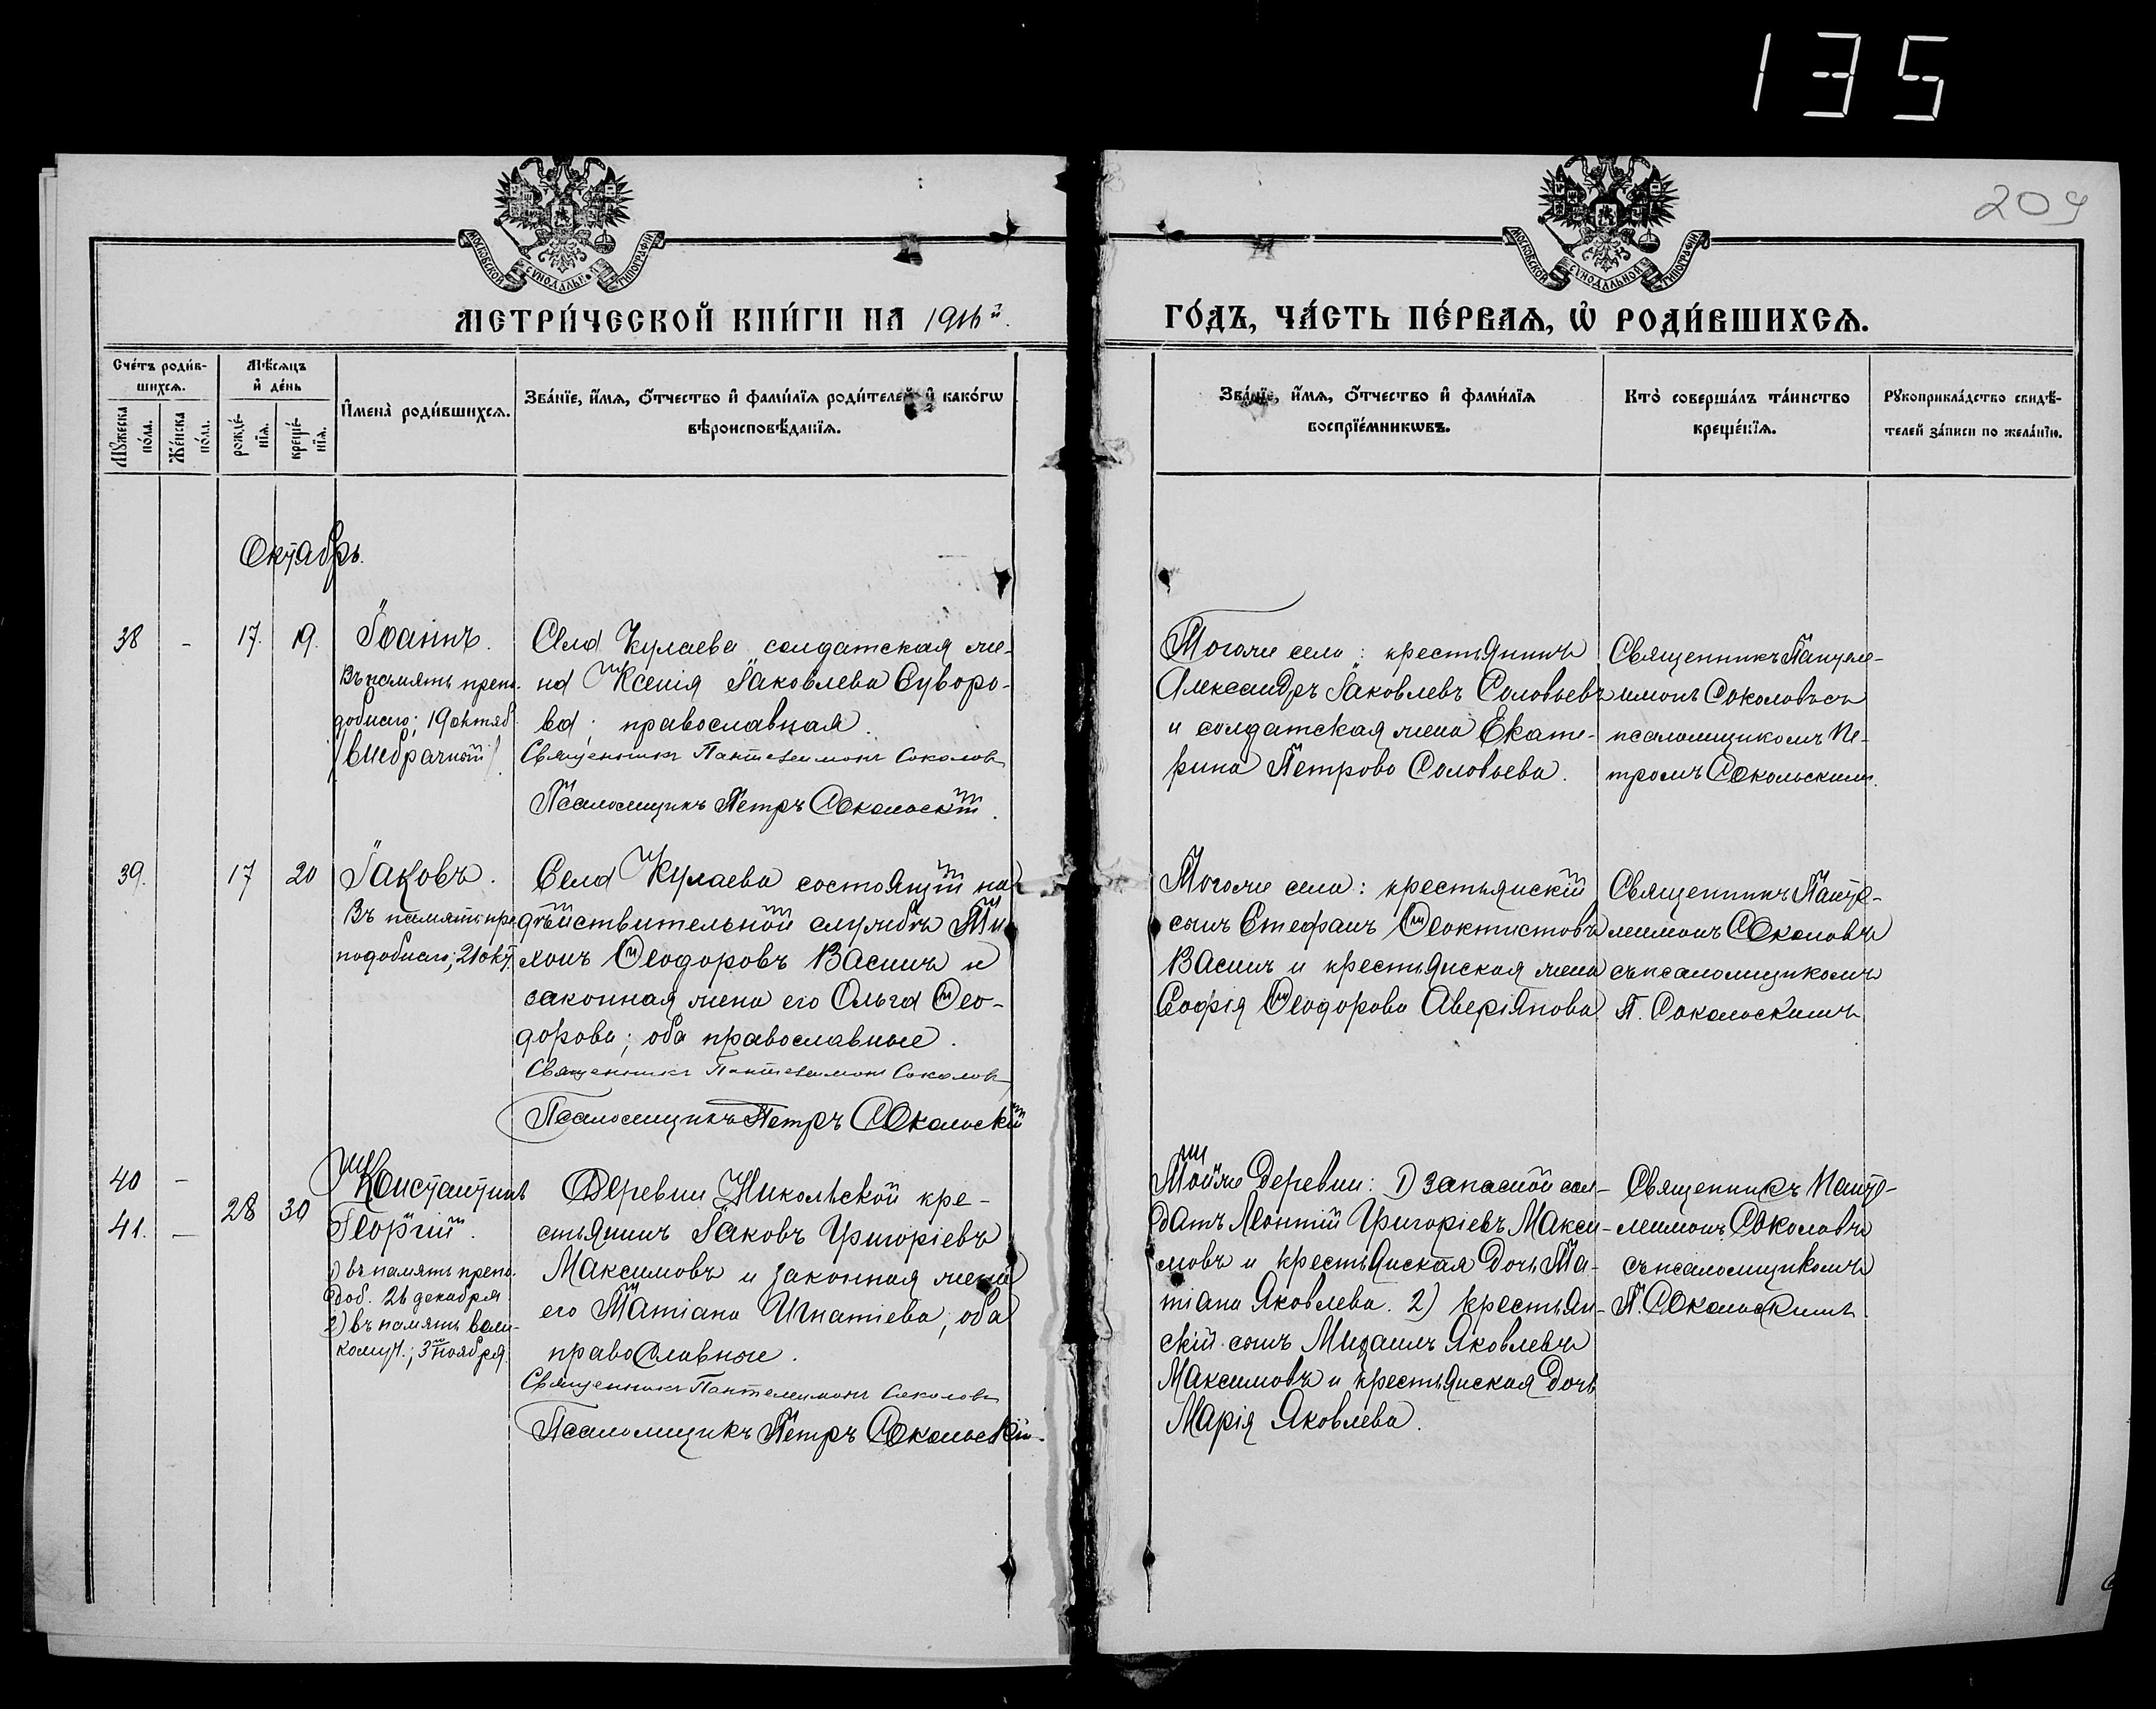 135
209
МОСКОВСКОЙ СѴНОДАЛЬНОЙ ТИПОГРАФІИ
МОСКОВСКОЙ СѴНОДАЛЬНОЙ ТИПОГРАФІИ
МЕТРИ́ЧЕСКОЙ КНИ́ГИ НА 1916й.
ГО́ДЪ, ЧА́СТЬ ПЕ́РВАЯ, Ѽ РОДИ́ВШИХСЯ.
Сче́тъ роди́в-
шихся.
Мѣ́сяцъ
и҆ де́нь
Мꙋ́жеска по́ла.
Же́нска по́ла.
рожде́-нїя.
креще́-нїя.
И҆мена̀ роди́вшихся.
Зва́нїе, и҆́мя, ѻ҆́тчество и҆ фами́лїя роди́телей, и҆ како́гѡ
вѣроисповѣ́данїя.
Зва́нїе, и҆́мя, ѻ҆́тчество и҆ фами́лїя
воспрїе́мникѡвъ.
Кто̀ соверша́лъ та́инство
креще́нїя.
Рꙋкоприкла́дство свидѣ́-
телей за́писи по жела́нїю.
Октябрь.
38 - 17. 19.
Іоаннъ.
Въ память препо-
добнаго; 19 октяб.
/внебрачный/
Села Кулаева солдатская же-
на Ксенія Іаковлева Суворо-
ва; православная.
Священникъ Пантелеимонъ Соколовъ
Псаломщикъ Петръ Сокольскій.
Тогоже села: крестьянинъ
Александръ Іаковлевъ Соловьевъ
и солдатская жена Екате-
рина Петрова Соловьева.
Священникъ Пантеле-
имонъ Соколовъ съ
псаломщикомъ Пе-
тромъ Сокольскимъ.
39. 17 20
Іаковъ.
Въ память пре-
подобнаго; 21 окт.
Села Кулаева состоящій на
дѣйствительной службѣ Ти-
хонъ Ѳеодоровъ Васинъ и
законная жена его Ольга Ѳео-
дорова; оба православные.
Священникъ Пантелеимонъ Соколовъ
Псаломщикъ Петръ Сокольскій
Тогоже села: крестьянскій
сынъ Стефанъ Ѳеоктистовъ
Васинъ и крестьянская жена
Софія Ѳеодорова Аверіянова.
Священникъ Панте-
леимонъ Соколовъ
съ псаломщикомъ
П. Сокольскимъ
40 -
41. -
28 30
Константинъ
Георгій.
1) въ память препо-
доб. 26 декабря
2) въ память вели-
комуч.; 3 ноября.
Деревни Никольской кре-
стьянинъ Іаковъ Григоріевъ
Максимовъ и законная жена
его Татіана Игнатіева; оба
православные.
Священникъ Пантелеимонъ Соколовъ
Псаломщикъ Петръ Сокольскій.
Тойже деревни: 1) запасной сол-
датъ Леонтій Григоріевъ Макси-
мовъ и крестьянская дочь Та-
тіана Яковлева. 2) крестьян-
скій сынъ Михаилъ Яковлевъ
Максимовъ и крестьянская дочь
Марія Яковлева.
Священникъ Панте-
леимонъ Соколовъ
съ псаломщикомъ
П. Сокольскимъ.